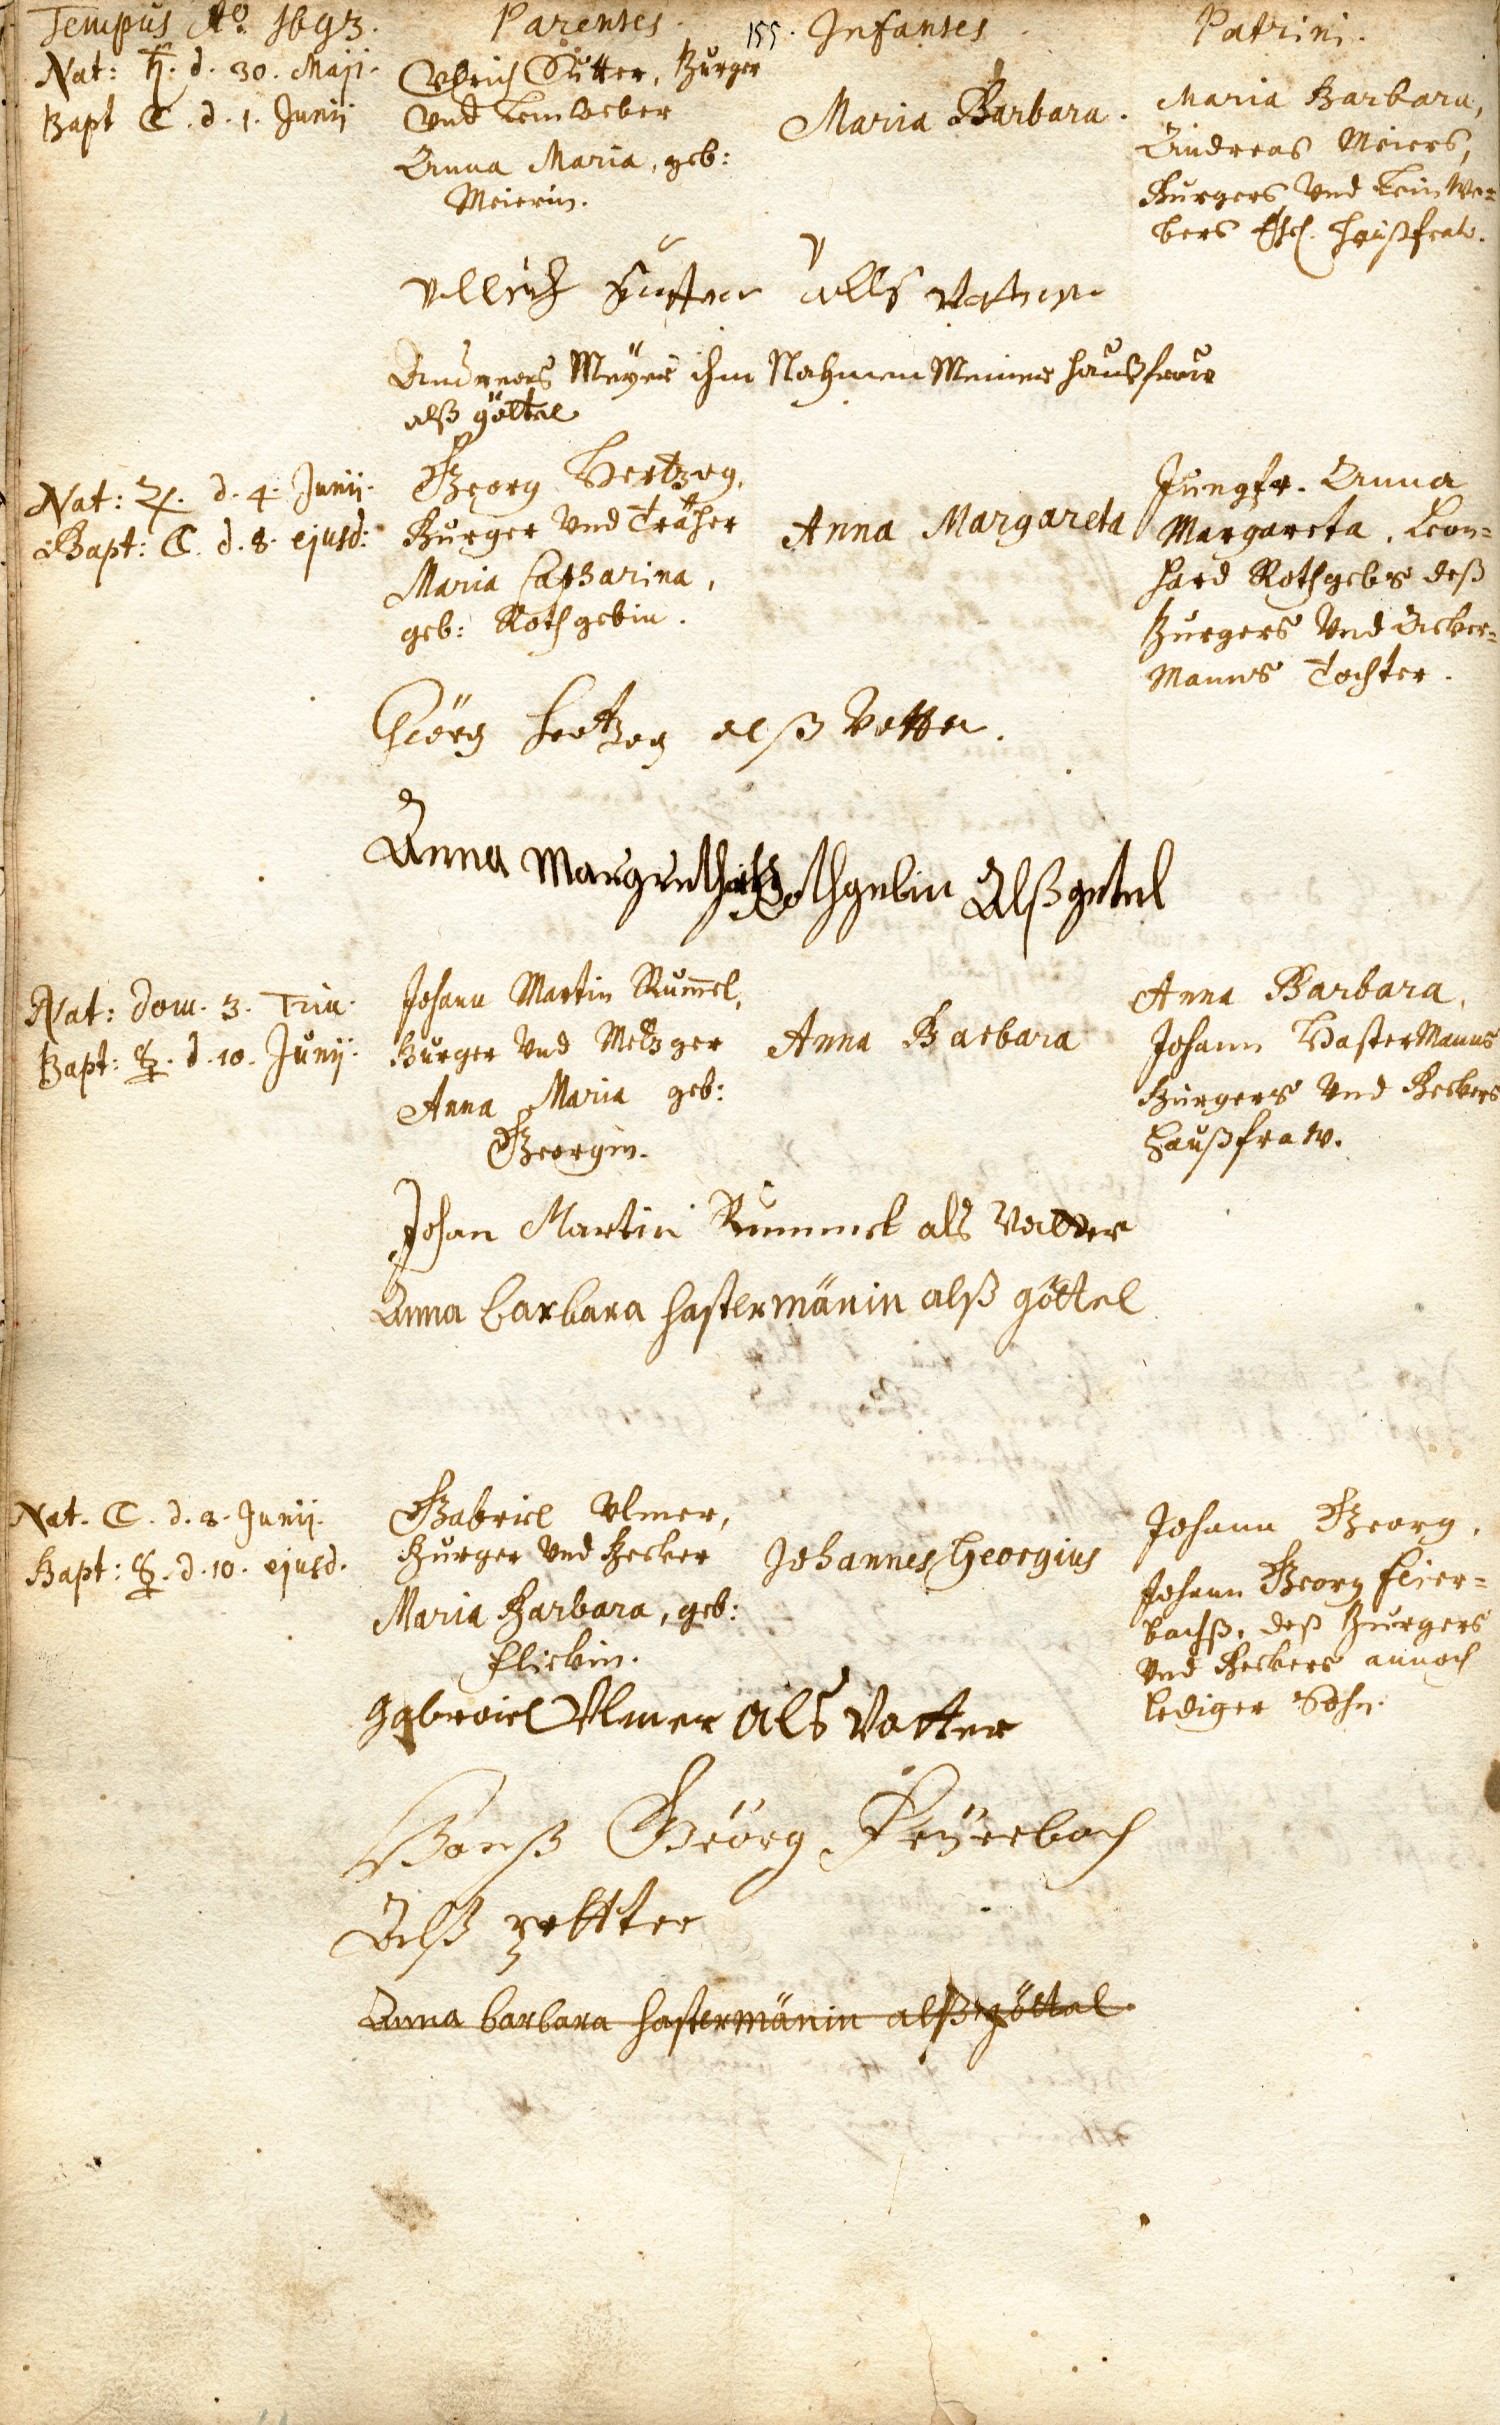 Tempus Ao. 1693.
Parentes.
155.
Infantes.
Patrini.
Nat: ♄. d. 30. Maji.
Bapt ☾. d. 1. Junij
Vlrich Sutter, Burger
Vnd Leinweber
Anna Maria, geb:
Meierin.
Maria Barbara.
Maria Barbara,
Andreas Meiers,
Burgers Vnd LeinWe=
bers Ehel. Haußfraw.
Vllrich Sutter alls Vatter
Andreas Meyer ihm Nahmen Meiner Haußfrauw
alß göttel
Nat: ♃. d. 4. Junij.
Bapt: ☾. d. 8. ejusd:
Georg Hertzog,
Burger Vnd Träher
Maria Catharina,
geb: Rothgebin.
Anna Margareta
Jungfr. Anna
Margareta, Leon=
hard Rothgebs deß
Burgers Vnd Acker=
Manns Tochter.
Geörg Hertzog alß Vatter.
Anna Margretha Rothgebin Alß getel
Nat: Dom. 3. Trin.
Bapt: ☿. d. 10. Junij.
Johann Martin Rum̅el,
Burger Vnd Metzger
Anna Maria geb:
Georgin.
Anna Barbara
Anna Barbara,
Johann HasterManns
Burgers Vnd Beckers
Haußfraw.
Johan Martin Rummel als Vatter
Anna barbara hastermänin alß göttel
Nat. ☾. d. 8. Junij.
Bapt: ☿. d. 10. ejusd.
Gabriel Vlmer,
Burger Vnd Becker
Maria Barbara, geb:
Flickin.
Johannes Georgius
Johann Georg,
Johann Georg Feier=
bachß, deß Burgers
Vnd Beckers annoch
lediger Sohn.
gabroiel Vlmer als Vatter
Hanß Geörg Feÿerbach
Alß pettter
Anna barbara hastermänin alß göttel